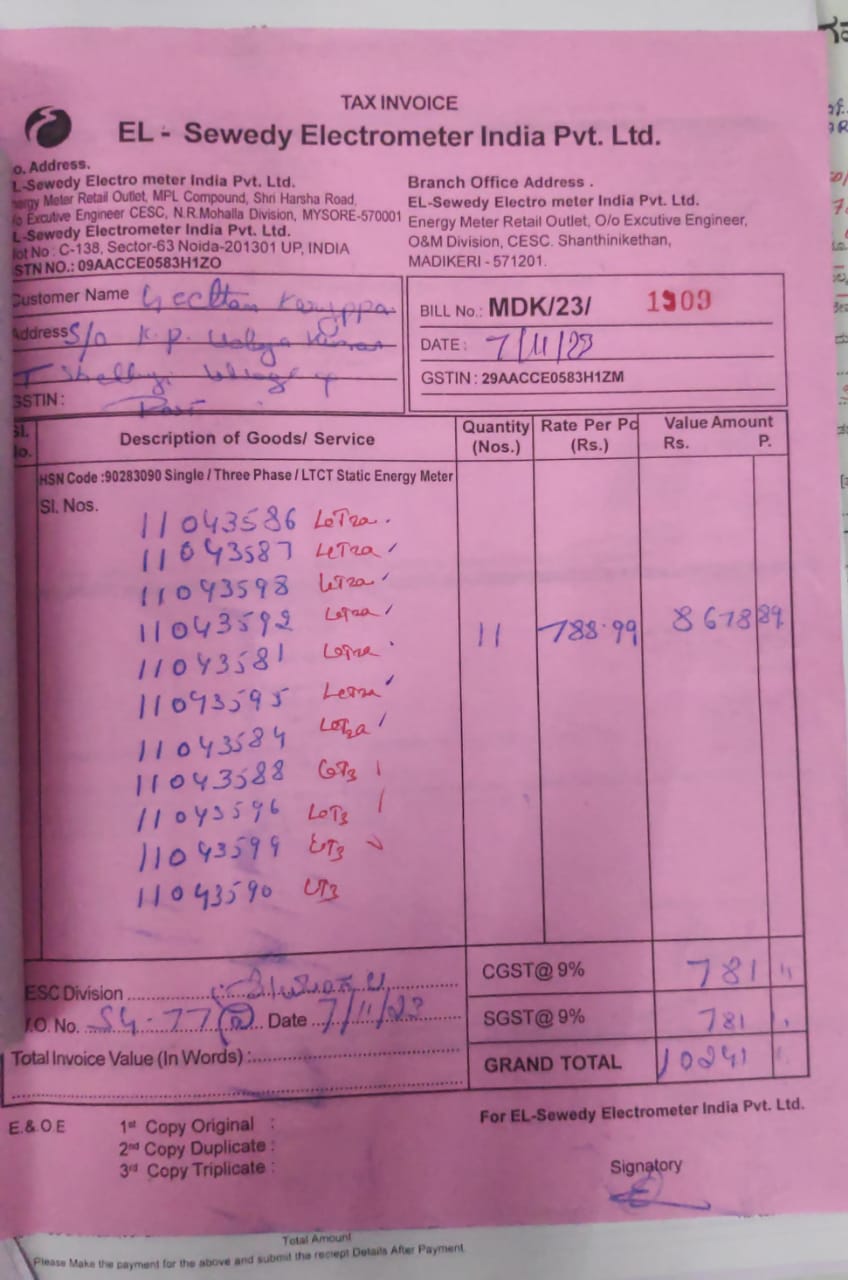 TAX INVOICE
EL - Sewedy Electrometer India Pvt. Ltd.
o. Address.
L-Sewedy Electro meter India Pvt. Ltd.
nergy Meter Retail Outlet, MPL Compound, Shri Harsha Road,
/o Excutive Engineer CESC, N.R.Mohalla Division, MYSORE-570001
L-Sewedy Electrometer India Pvt. Ltd.
lot No : C-138, Sector-63 Noida-201301 UP, INDIA
STN NO.: 09AACCE0583H1ZO
Branch Office Address .
EL-Sewedy Electro meter India Pvt. Ltd.
Energy Meter Retail Outlet, O/o Excutive Engineer,
O&M Division, CESC. Shanthinikethan,
MADIKERI - 571201.
Customer Name
Address S/o K.P.
GSTIN :
BILL No.: MDK/23/ 1309
DATE : 7/11/23
GSTIN : 29AACCE0583H1ZM
Sl. No. Description of Goods/ Service Quantity (Nos.) Rate Per Pc (Rs.) Value Amount Rs. P.
HSN Code :90283090 Single / Three Phase / LTCT Static Energy Meter
Sl. Nos.
11043586
11043587
11043598
11043592
11043581
11 788.99 8678 89
11043595
11043584
11043588
11043596
11043599
11043590
CGST@ 9% 781
ESC Division
SGST@ 9% 781
.O. No. Date 7/11/23
Total Invoice Value (In Words) :
GRAND TOTAL 10241
For EL-Sewedy Electrometer India Pvt. Ltd.
E.& O.E
1st Copy Original :
2nd Copy Duplicate :
3rd Copy Triplicate :
Signatory
Total Amount
Please Make the payment for the above and submit the reciept Details After Payment.